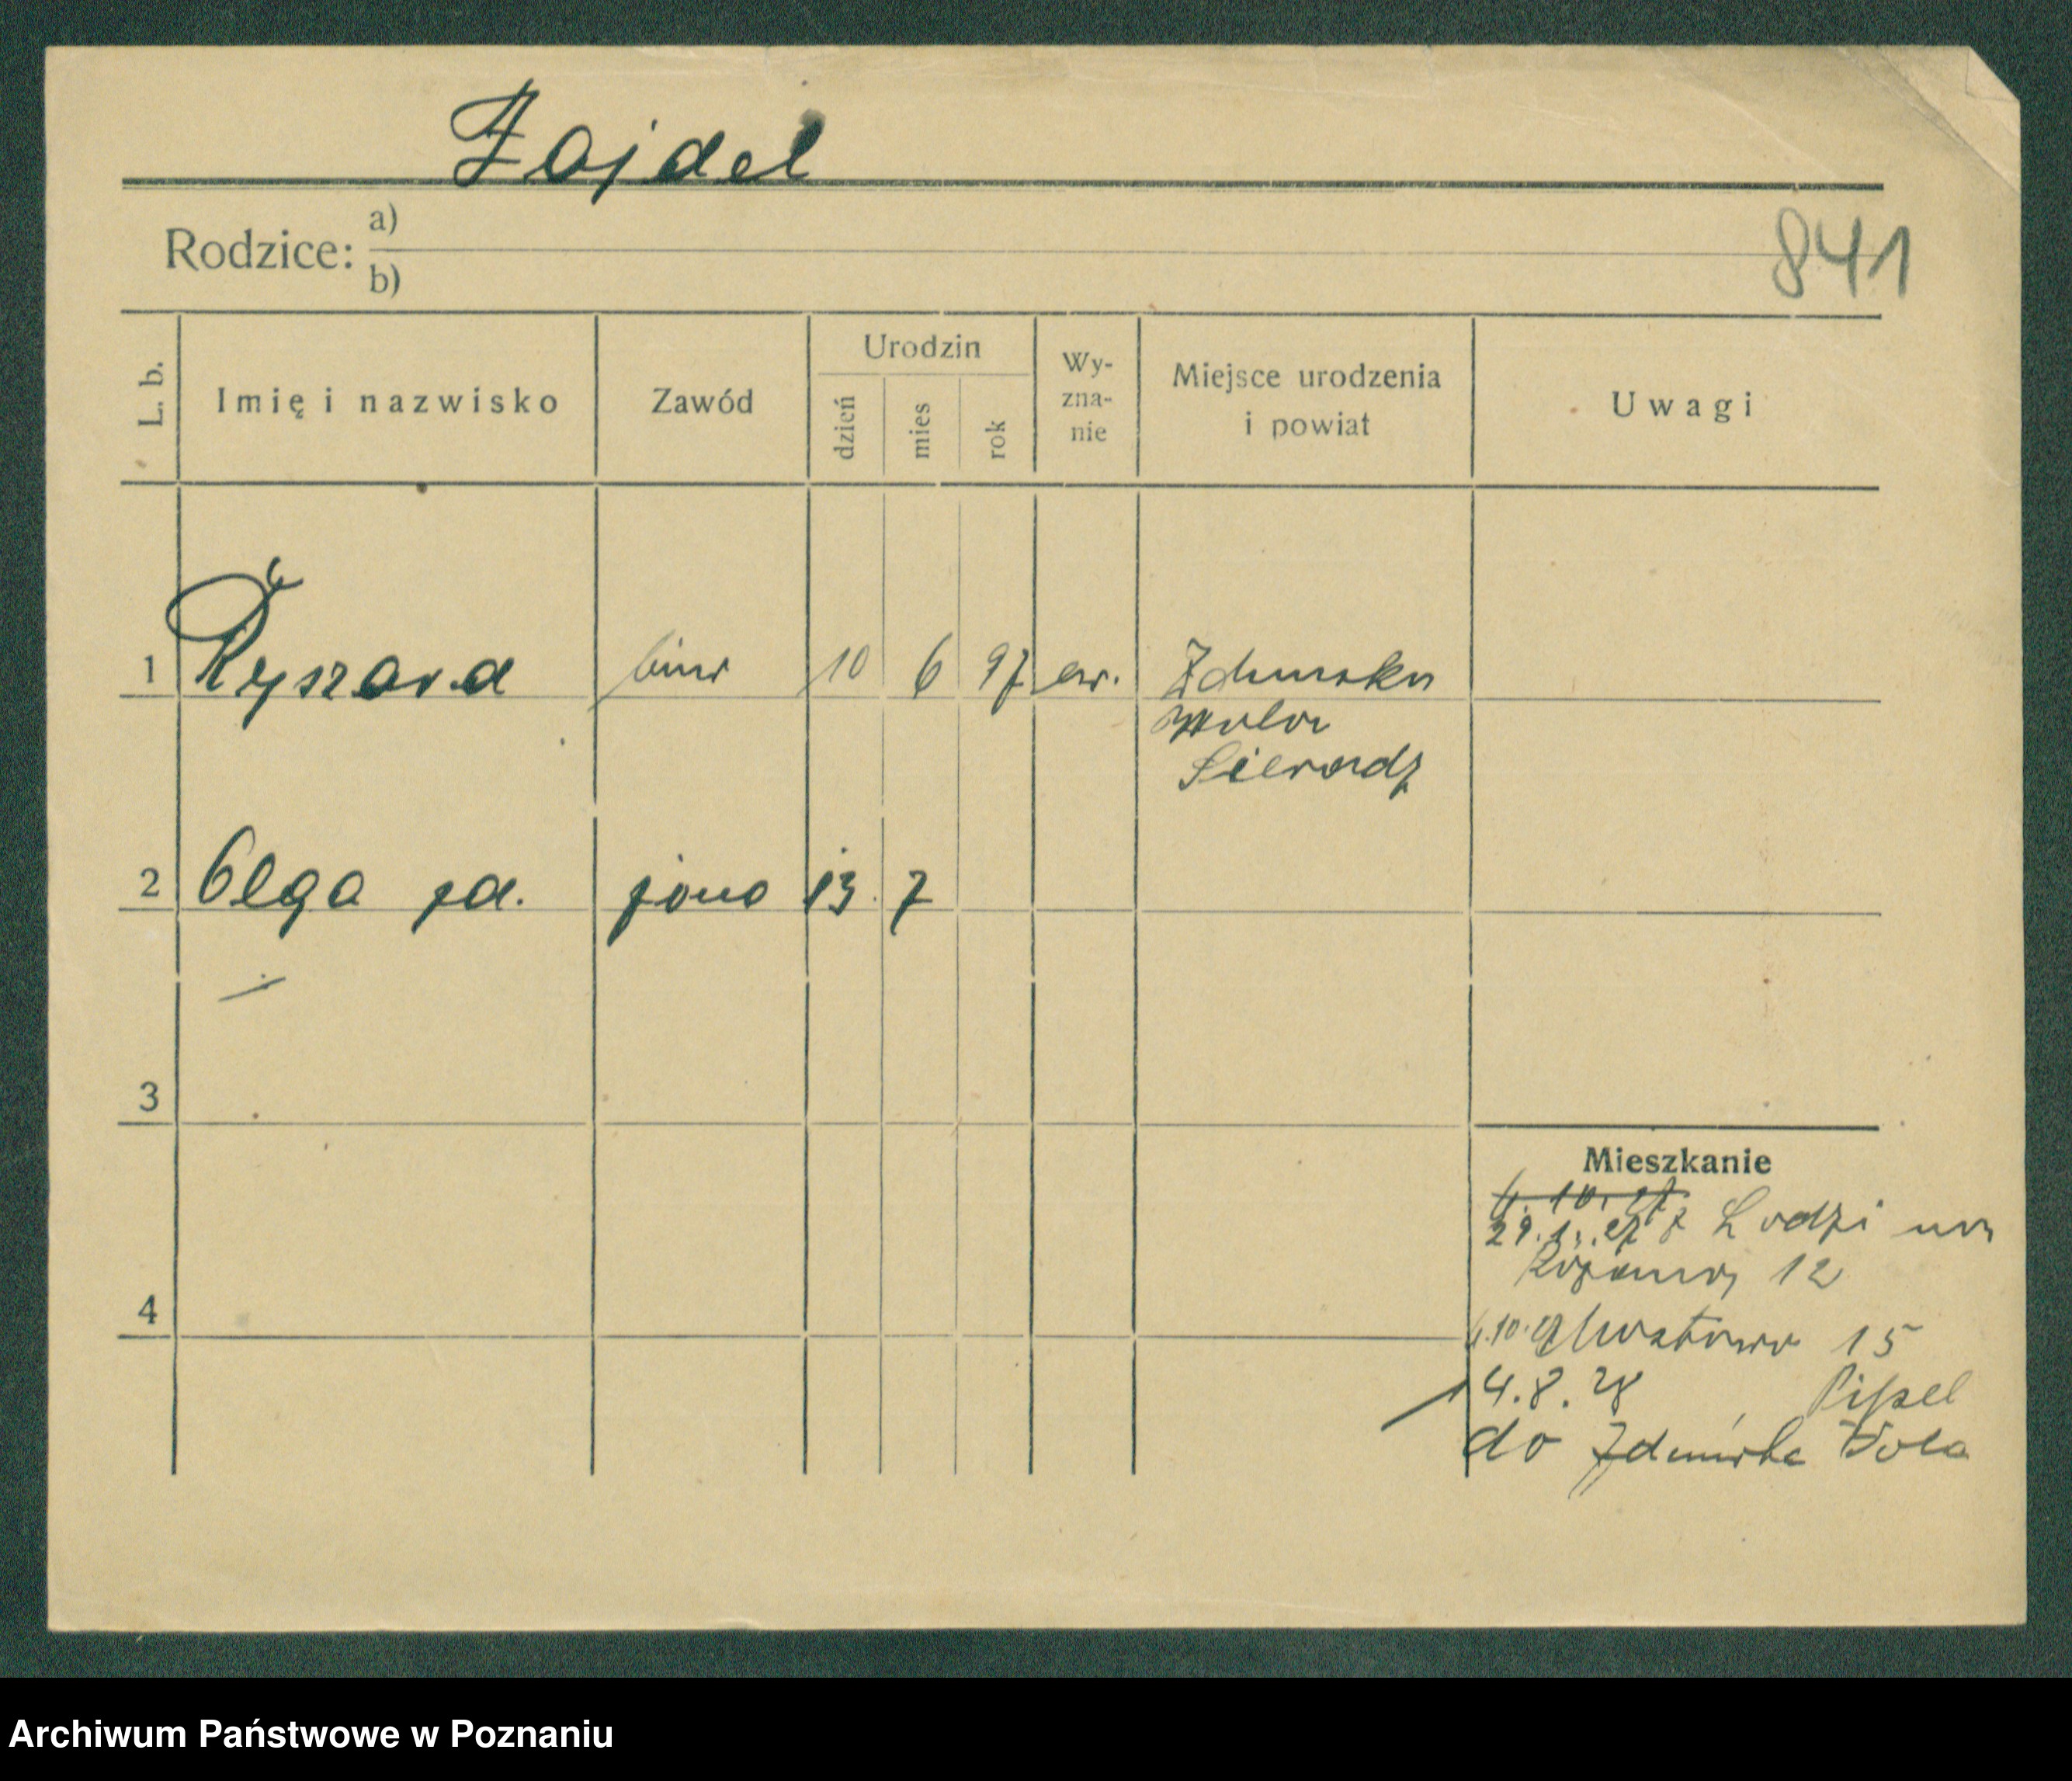 Zajdel
Rodzice: a)
b)
841
L. b. Imię i nazwisko Zawód Urodzin dzień mies rok Wy-zna-nie Miejsce urodzenia i powiat Uwagi
1 Ryszard biur 10 6 97 ew. Zdunska
Wola
Sieradz
2 Olga zd. żona 13. 7
3
Mieszkanie
4. 10. 27.
29. 27 z Lodzi na
12
4
4.10.27 15
14.8.28
do Zduńska Wola
Archiwum Państwowe w Poznaniu